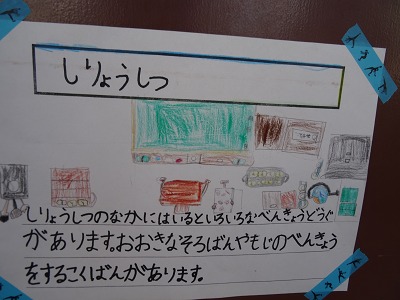 しりょうしつ
しりょうしつのなかにはいるといろいろなべんきょうどうぐ
があります。おおきなそろばんやもじのべんきょう
をするこくばんがあります。